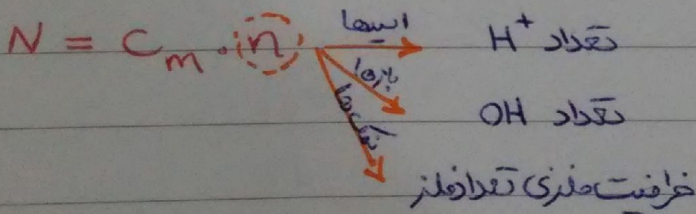 N = Cm . n اسیدها تعداد H+
بازها تعداد OH
نمک ها ظرفیت فلزی تعداد فلز